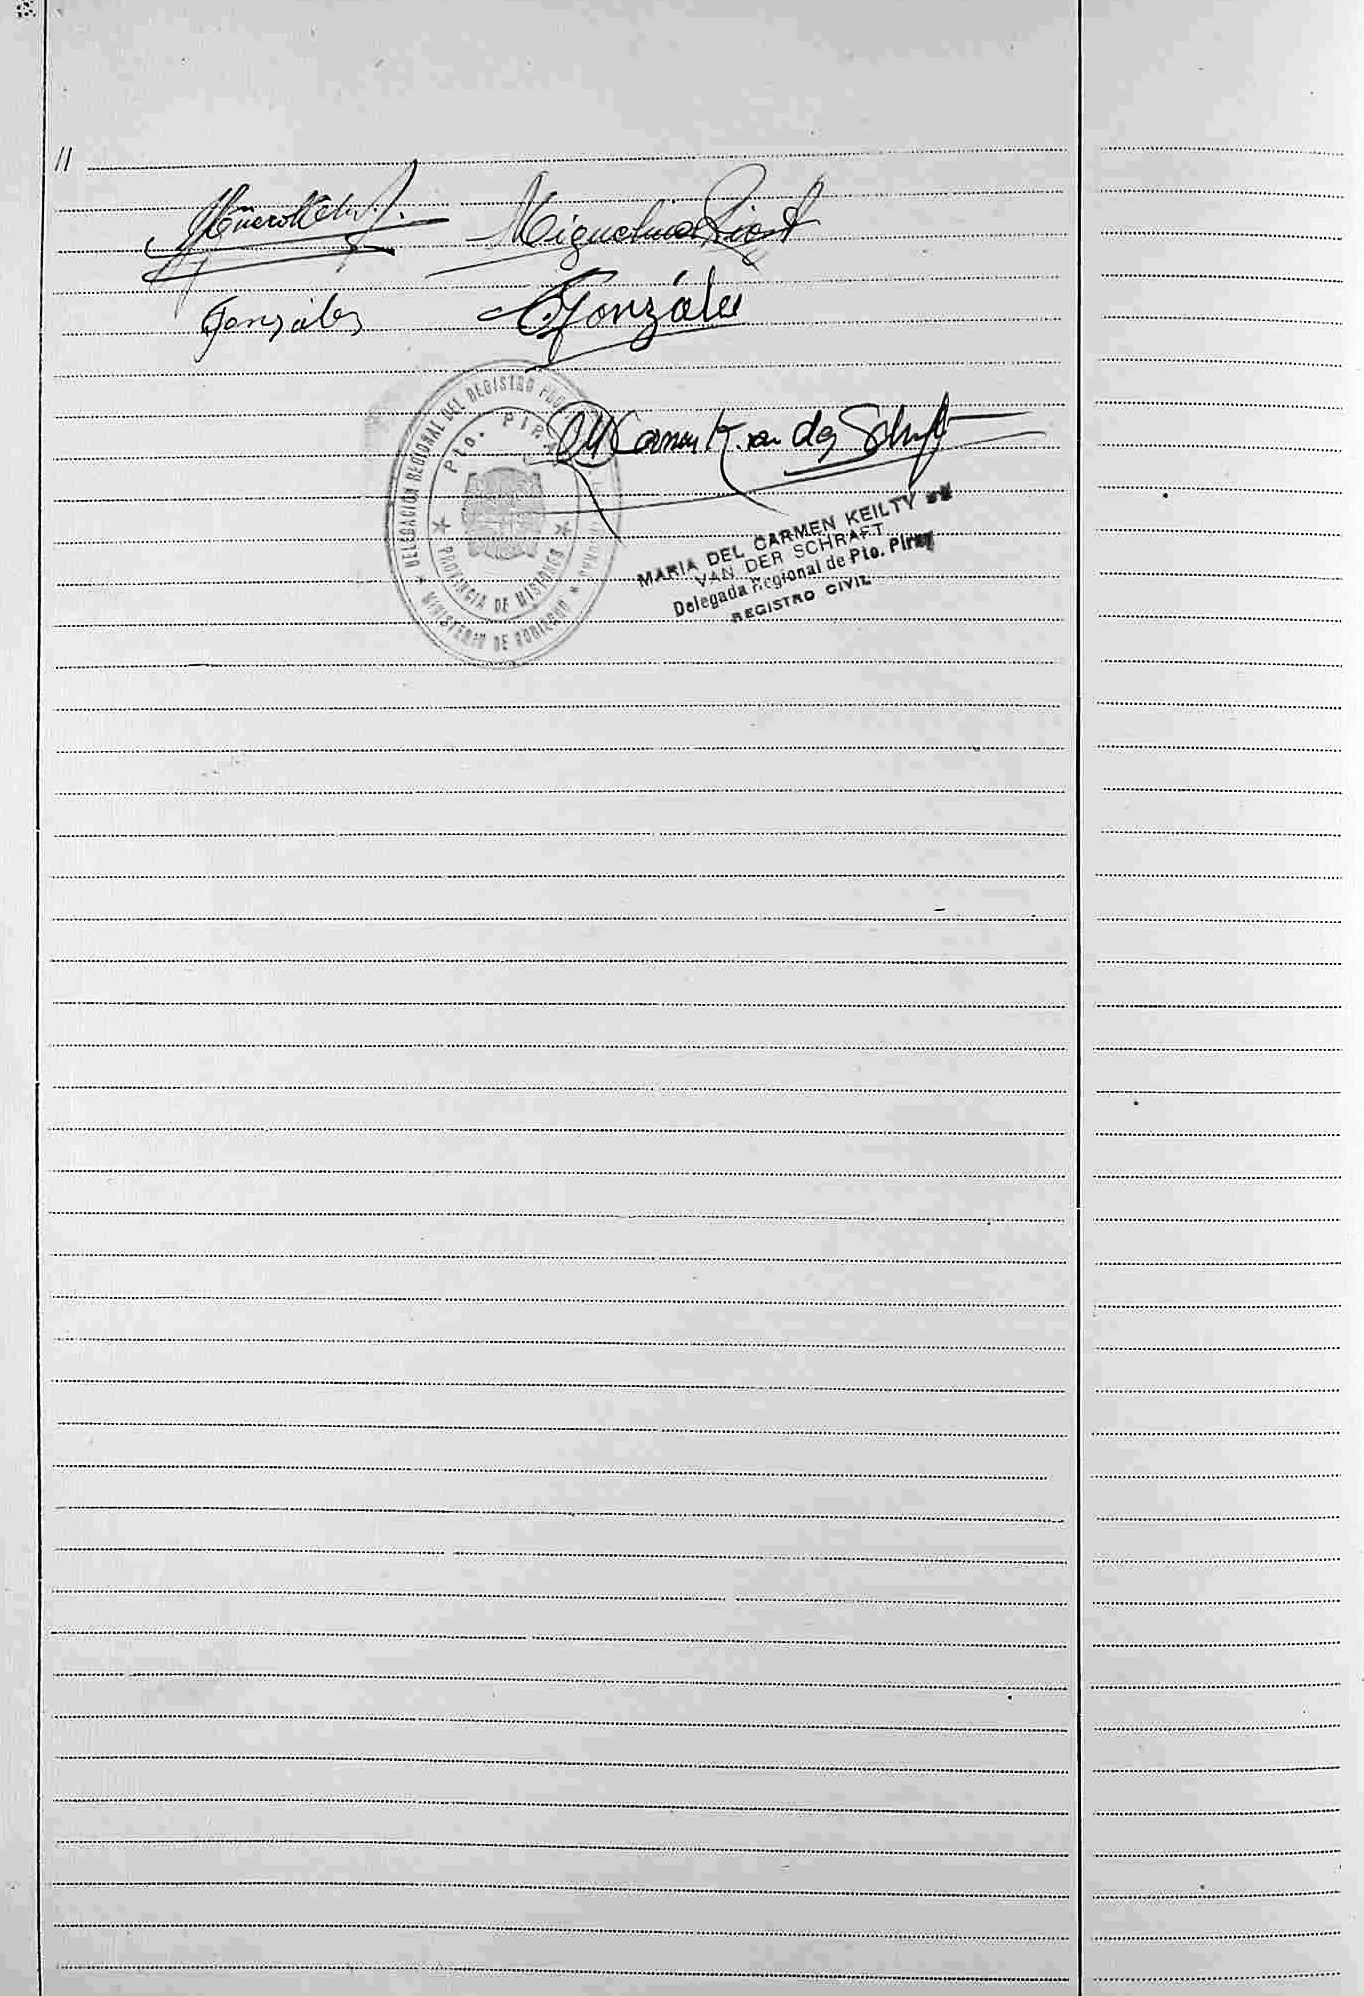 //
Miguelina
Gonzáles
Gonzáles
DELEGACIÓN REGIONAL DEL REGISTRO
Pto. PIRAY
PROVINCIA DE MISIONES
MINISTERIO DE GOBIERNO
M Carmen K. van der Schraft
MARIA DEL CARMEN KEILTY DE
VAN DER SCHRAFT
Delegada Regional de Pto. Piray
REGISTRO CIVIL